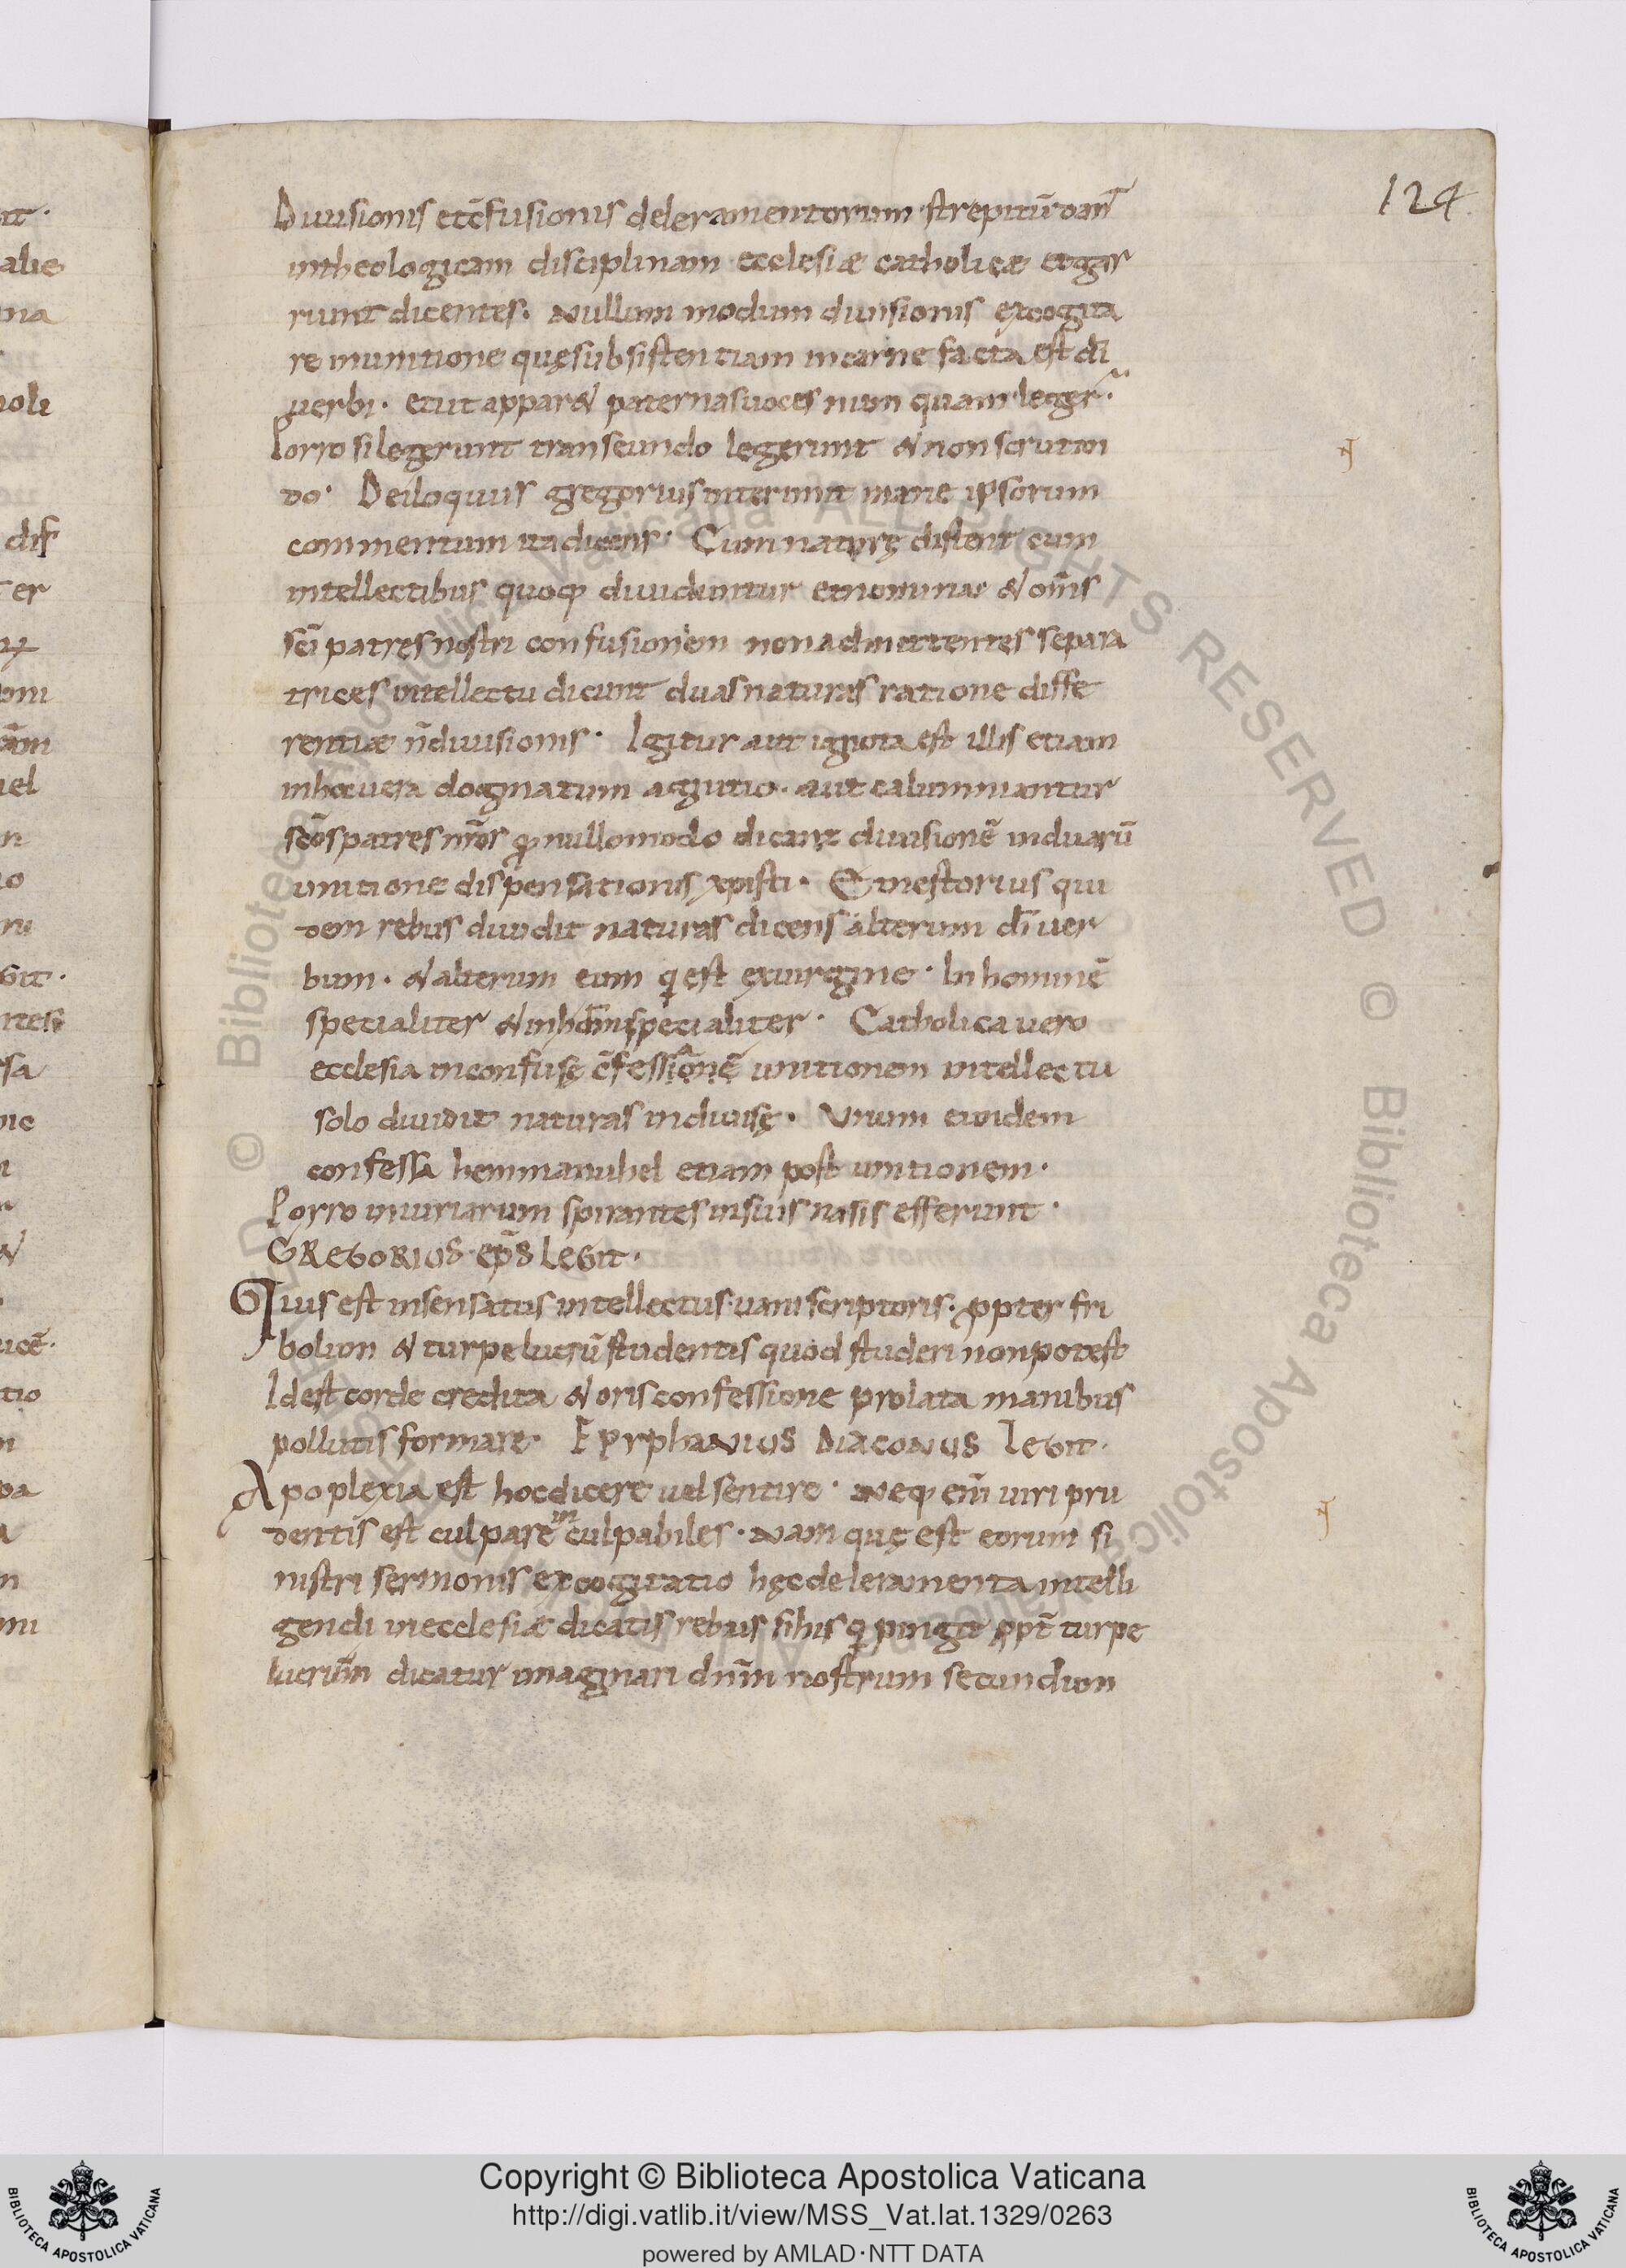 124
Diuisionis et c̄fusionis deleramentorum strepitū tan̄
in theologicam disciplinam ecclesiæ catholicæ et eger
runt dicentes. Nullum modum diuisionis excogita
re in unitione quę subsistentiam in carne facta est dī
uerbi. et ut apparet paternas uoces numquam leger̄.
Porro si legerunt transeundo legerunt et non scrutan
do. Deiloquus gregorius interimit mane ipsorum
commentum ita dicens. Cum naturę distent cum
intellectibus quoq; diuiduntur et nomina. et om̄s
sc̄i patres nostri confusionem non admittentes separa
trices intellectu dicunt duas naturas ratione diffe
rentiæ n̄ diuisionis. Igitur aut ignota est illis etiam
in hoc uera dogmatum agnitio. aut calumniantur
sc̄os patres nr̄os quod nullomodo dicant diuisionē in duarū
unitione dispensationis xpisti. Et nestorius qui
dem rebus diuidit naturas dicens alterum dī uer
bum. et alterum eum qui est ex uirgine. In hominē
specialiter et in hōm specialiter. Catholica uero
ecclesia inconfusę c̄fessionē unitionem intellectu
solo diuidit naturas indiuisę. Unum eundem
confessa hemmanuhel etiam post unitionem.
Porro iniuriarum spirantes in suis nasis efferunt.
GREGORIUS ep̄s LEGIT.
Quis est insensatus intellectus uani scriptoris. propter fri
bolum et turpe lucrū studentis quod studeri non potest
Id est corde credita et oris confessione prolata manibus
pollutis formare. EPYPHANIUS DIACONUS LEGIT.
Apoplexia est hoc dicere uel sentire. Neq; enī uiri pru
dentis est culpare inculpabiles. Nam quę est eorum si
nistri sermonis excogitatio hęc deleramenta intelli
gendi in ecclesiæ dicatis rebus si his qui pingit ppt̄ turpe
lucrūm dicatur imaginari dn̄m nostrum secundum
© Biblioteca Apostolica Vaticana ALL RIGHTS RESERVED
Copyright © Biblioteca Apostolica Vaticana
http://digi.vatlib.it/view/MSS_Vat.lat.1329/0263
powered by AMLAD·NTT DATA
BIBLIOTECA APOSTOLICA VATICANA
BIBLIOTECA APOSTOLICA VATICANA